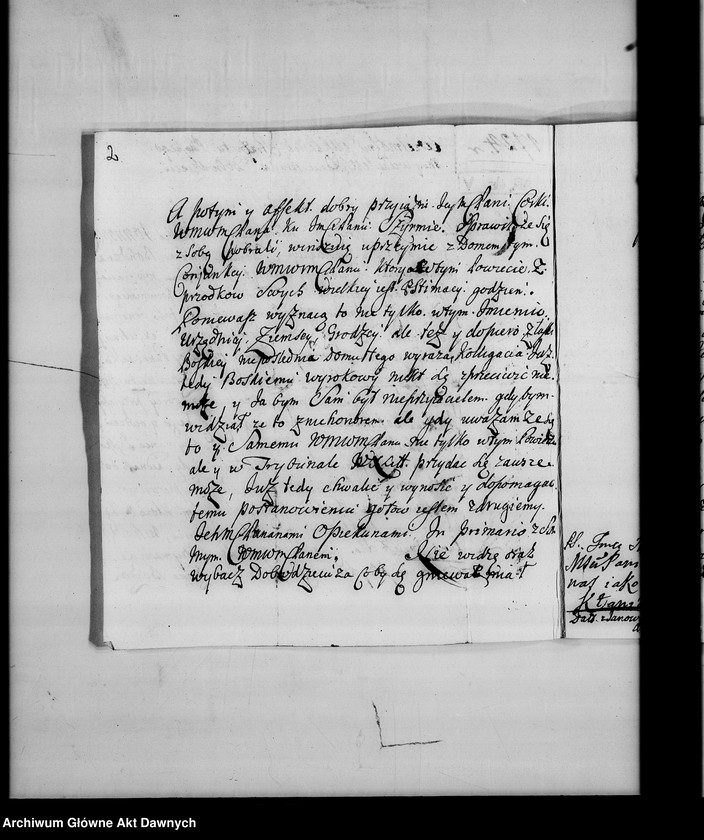 2
A potym y affekt dobry przyiaźni Jeymści Pani Corki
WMWM Pana ku Imści Panu Szyrmie. Sprawił że się
z sobą pobrali, winszuię uprzeymie z Domem tym
Conjunkcyi WMWM Panu, ktory w tym Powiecie z
przodkow Swych wielkiey iest Estimacyi godzien.
Ponieważ wyznaią to nie tylko w tym Imieniu
Urzędnicy Ziemscy, Grodzcy ale też y dopiero z łaski
Boskiey nieposlednia Domu tego wyraża Kolligacia Już
tedy Boskiemu wyrokowi nikt się sprzeciwić nie
może, y Ja bym Sam był nieprzyiacielem gdybym
widział że to z niehonorem ale gdy uważam że się
to y Samemu WMWM Panu nie tylko w tym Powiecie
ale y w Trybunale W. X. Litt. przydać się zawsze
może, Już tedy chwalić y wynosić y dopomagać
temu postanowieniu gotow iestem z drugiemi
Ichm Panami Opiekunami. In primario z Sa
mym WMWM Panem. Nie widzę oraz
wybacz Dobrodzieiu za co by się gniewać miał
Mści Pan
nas iako
Dat. z Janow